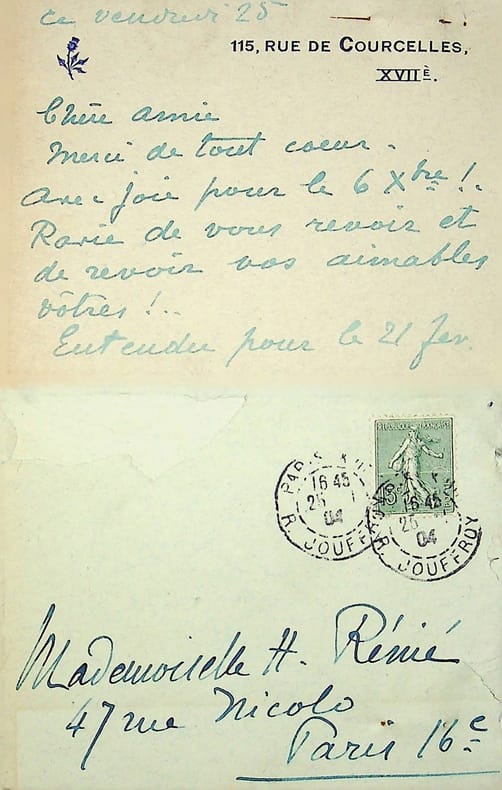 ce vendredi 25
115, RUE DE COURCELLES,
XVIIE.
Chère amie
Merci de tout coeur.
Avec joie pour le 6 Xbre !.
Ravie de vous revoir et
de revoir vos aimables
vôtres !..
Entendu pour le 21 fev.
REPUBLIQUE FRANÇAISE
15c
PARIS XVII
16 45
25
04
R. JOUFFROY
16 45
25
04
R. JOUFFROY
Mademoiselle H. Rénié
47 rue Nicolo
Paris 16e